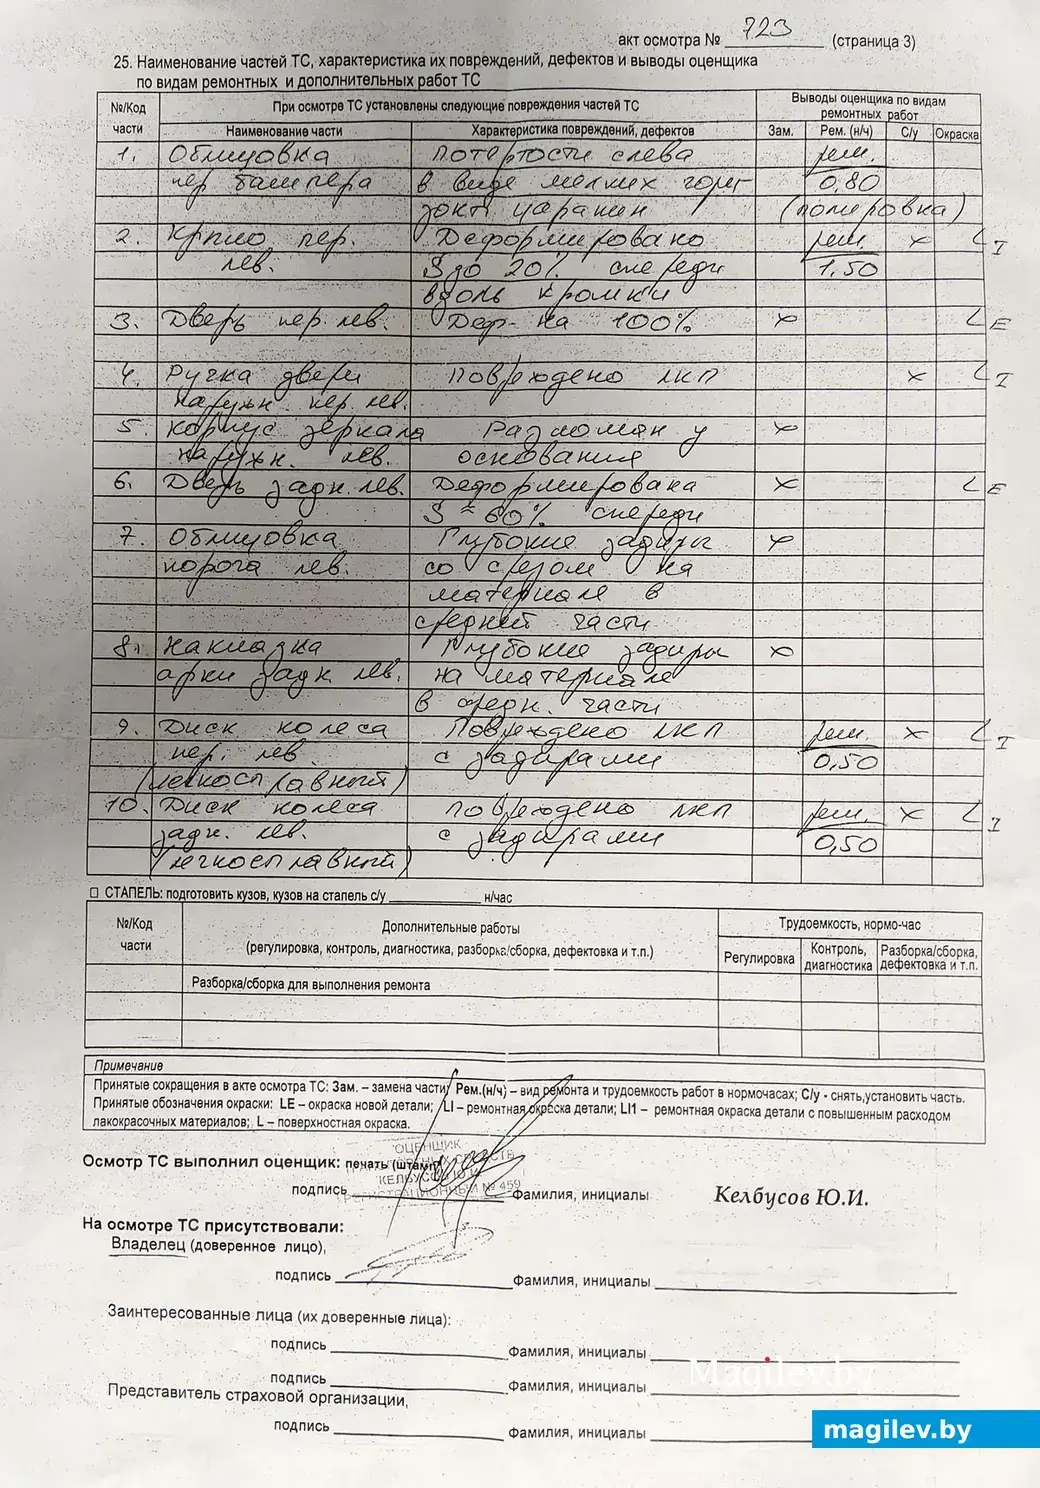 акт осмотра № 723 (страница 3)
25. Наименование частей ТС, характеристика их повреждений, дефектов и выводы оценщика
по видам ремонтных и дополнительных работ ТС
№/Код части
При осмотре ТС установлены следующие повреждения частей ТС
Выводы оценщика по видам ремонтных работ
Наименование части Характеристика повреждений, дефектов Зам. Рем. (н/ч) С/у Окраска
1. Облицовка потертости слева рем.
пер бампера в виде мелких гориз- 0,80
зонт царапин (полировка)
2. Крыло пер. Деформировано рем. х L I
лев. S до 20% спереди 1,50
вдоль кромки
3. Дверь пер. лев. Деф- на 100% х L E
4. Ручка двери Повреждено ЛКП х L I
наружн. пер. лев.
5. корпус зеркала Разломан у х
наружн. лев. основания
6. Дверь задн. лев. Деформирована х L E
S ≈ 60% спереди
7. Облицовка Глубокие задиры х
порога лев. со срезом на
материале в
средней части
8. Накладка Глубокие задиры х
арки задн лев. на материале
в средн. части
9. Диск колеса Повреждено ЛКП рем. х L I
пер. лев. с задирами 0,50
(легкосплавный)
10. Диск колеса повреждено ЛКП рем. х L I
задн. лев. с задирами 0,50
(легкосплавный)
СТАПЕЛЬ: подготовить кузов, кузов на стапель с/у н/час
№/Код части
Дополнительные работы
(регулировка, контроль, диагностика, разборка/сборка, дефектовка и т.п.)
Трудоемкость, нормо-час
Регулировка Контроль, диагностика Разборка/сборка, дефектовка и т.п.
Разборка/сборка для выполнения ремонта
Примечание
Принятые сокращения в акте осмотра ТС: Зам. – замена части; Рем.(н/ч) – вид ремонта и трудоемкость работ в нормочасах; С/у - снять,установить часть.
Принятые обозначения окраски: LE – окраска новой детали; LI – ремонтная окраска детали; LI1 – ремонтная окраска детали с повышенным расходом
лакокрасочных материалов; L – поверхностная окраска.
ОЦЕНЩИК
Осмотр ТС выполнил оценщик: печать (штамп)
КЕЛБУСОВ Ю.И.
№ 459
подпись Фамилия, инициалы Келбусов Ю.И.
На осмотре ТС присутствовали:
Владелец (доверенное лицо),
подпись Фамилия, инициалы
Заинтересованные лица (их доверенные лица):
подпись Фамилия, инициалы
подпись Фамилия, инициалы
Представитель страховой организации,
подпись Фамилия, инициалы
Magilev.by
magilev.by